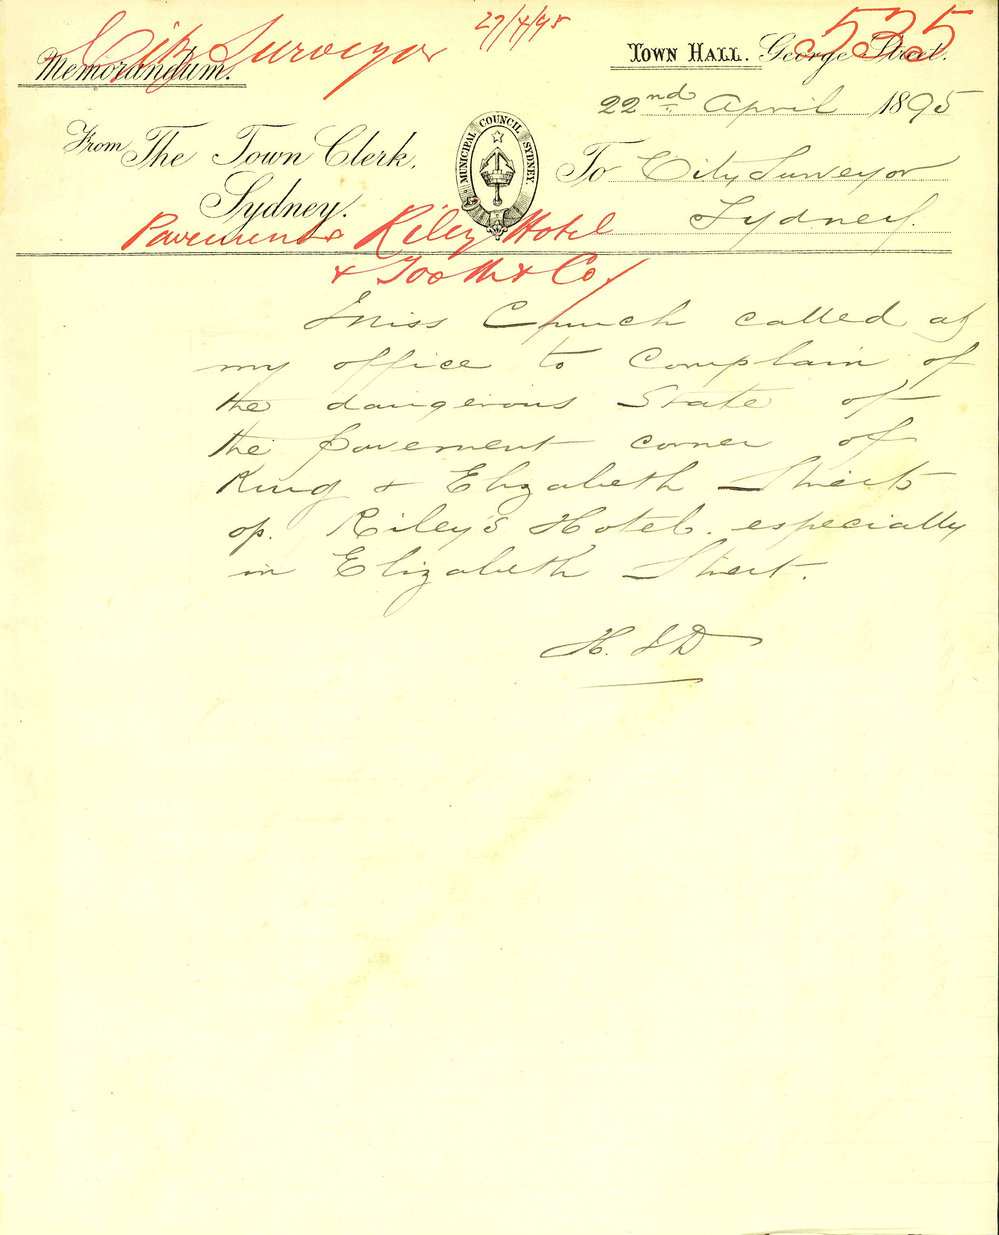 27/4/95
535
City Surveyor
Memorandum.
Town Hall. George Street.
22nd April 1895
From The Town Clerk,
Sydney.
MUNICIPAL COUNCIL SYDNEY.
To City Surveyor
Sydney.
Pavement Riley Hotel
& Tooth & Co/
Miss Church called at
my office to complain of
the dangerous State of
the pavement corner of
King & Elizabeth Streets
op. Riley's Hotel. especially
in Elizabeth Street.